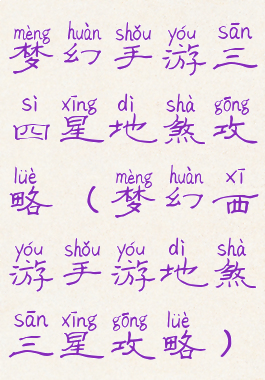 mèng huàn shǒu yóu sān
梦幻手游三
sì xīng dì shà gōng
四星地煞攻
lüè mèng huàn xī
略（梦幻西
yóu shǒu yóu dì shà
游手游地煞
sān xīng gōng lüè
三星攻略）